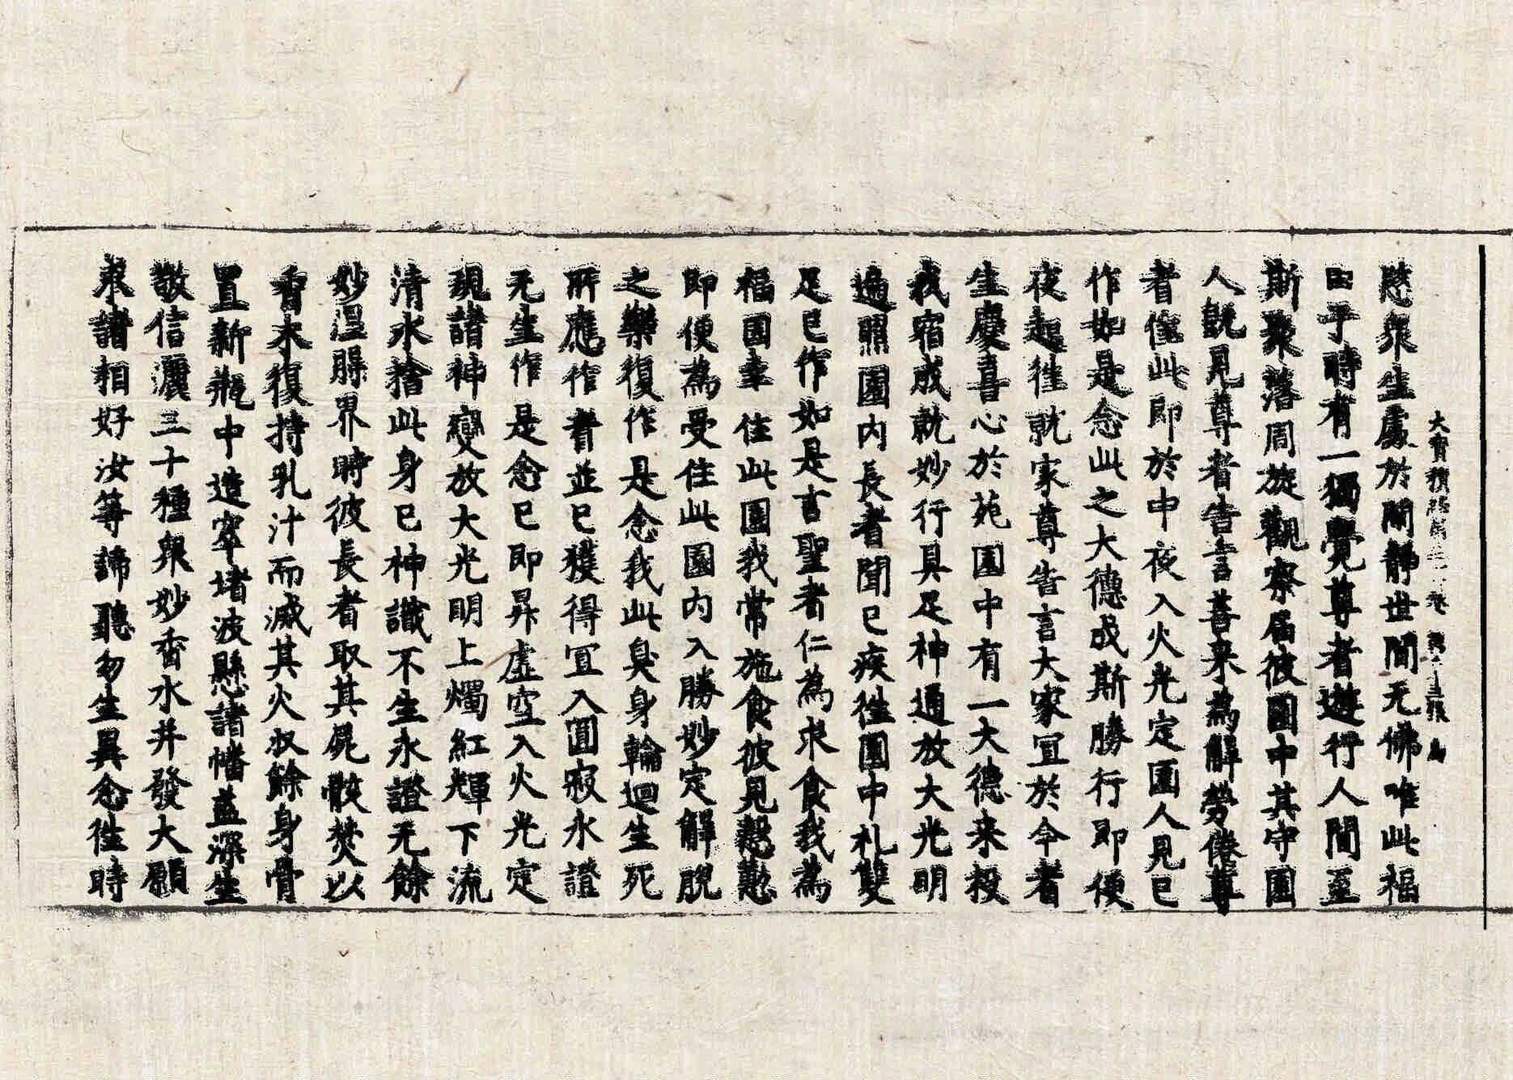 愍衆生處於閑靜世間无佛唯此福
田于時有一獨覺尊者遊行人間至
斯聚落周旋觀察届彼園中其守園
人旣見尊者告言善来為解勞倦尊
者住此即於中夜入火光定園人見已
作如是念此之大德成斯勝行即便
夜起往就家尊告言大家宜於今者
生慶喜心於苑園中有一大德来投
我宿成就妙行具足神通放大光明
遍照園内長者聞已疾往園中礼雙
足已作如是言聖者仁為求食我為
福因幸住此園我常施食彼見慇懃
即便為受住此園内入勝妙定解脫
之樂復作是念我此臭身輪迴生死
所應作者並已獲得宜入圓寂永證
无生作是念已即昇虛空入火光定
現諸神變放大光明上燭紅輝下流
清水捨此身已神識不生永證无餘
妙湼槃界時彼長者取其屍骸焚以
香木復持乳汁而滅其火收餘身骨
置新瓶中造窣堵波懸諸幡蓋深生
敬信灑三十種衆妙香水并發大願
求諸相好汝等諦聽勿生異念往時